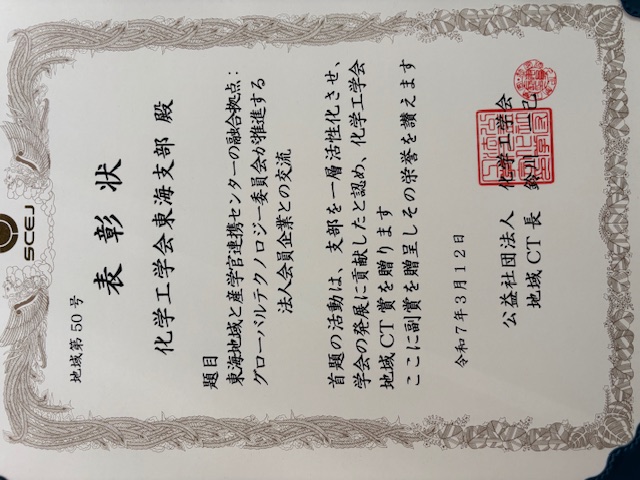 SCEJ
地域第50号
表彰状
化学工学会東海支部 殿
題目
東海地域と産学官連携センターの融合拠点：
グローバルテクノロジー委員会が推進する
法人会員企業との交流
首題の活動は、支部を一層活性化させ、
学会の発展に貢献したと認め、化学工学会
地域CT賞を贈ります
ここに副賞を贈呈しその栄誉を讃えます
令和7年3月12日
公益社団法人 化学工学会
地域CT長 鈴川